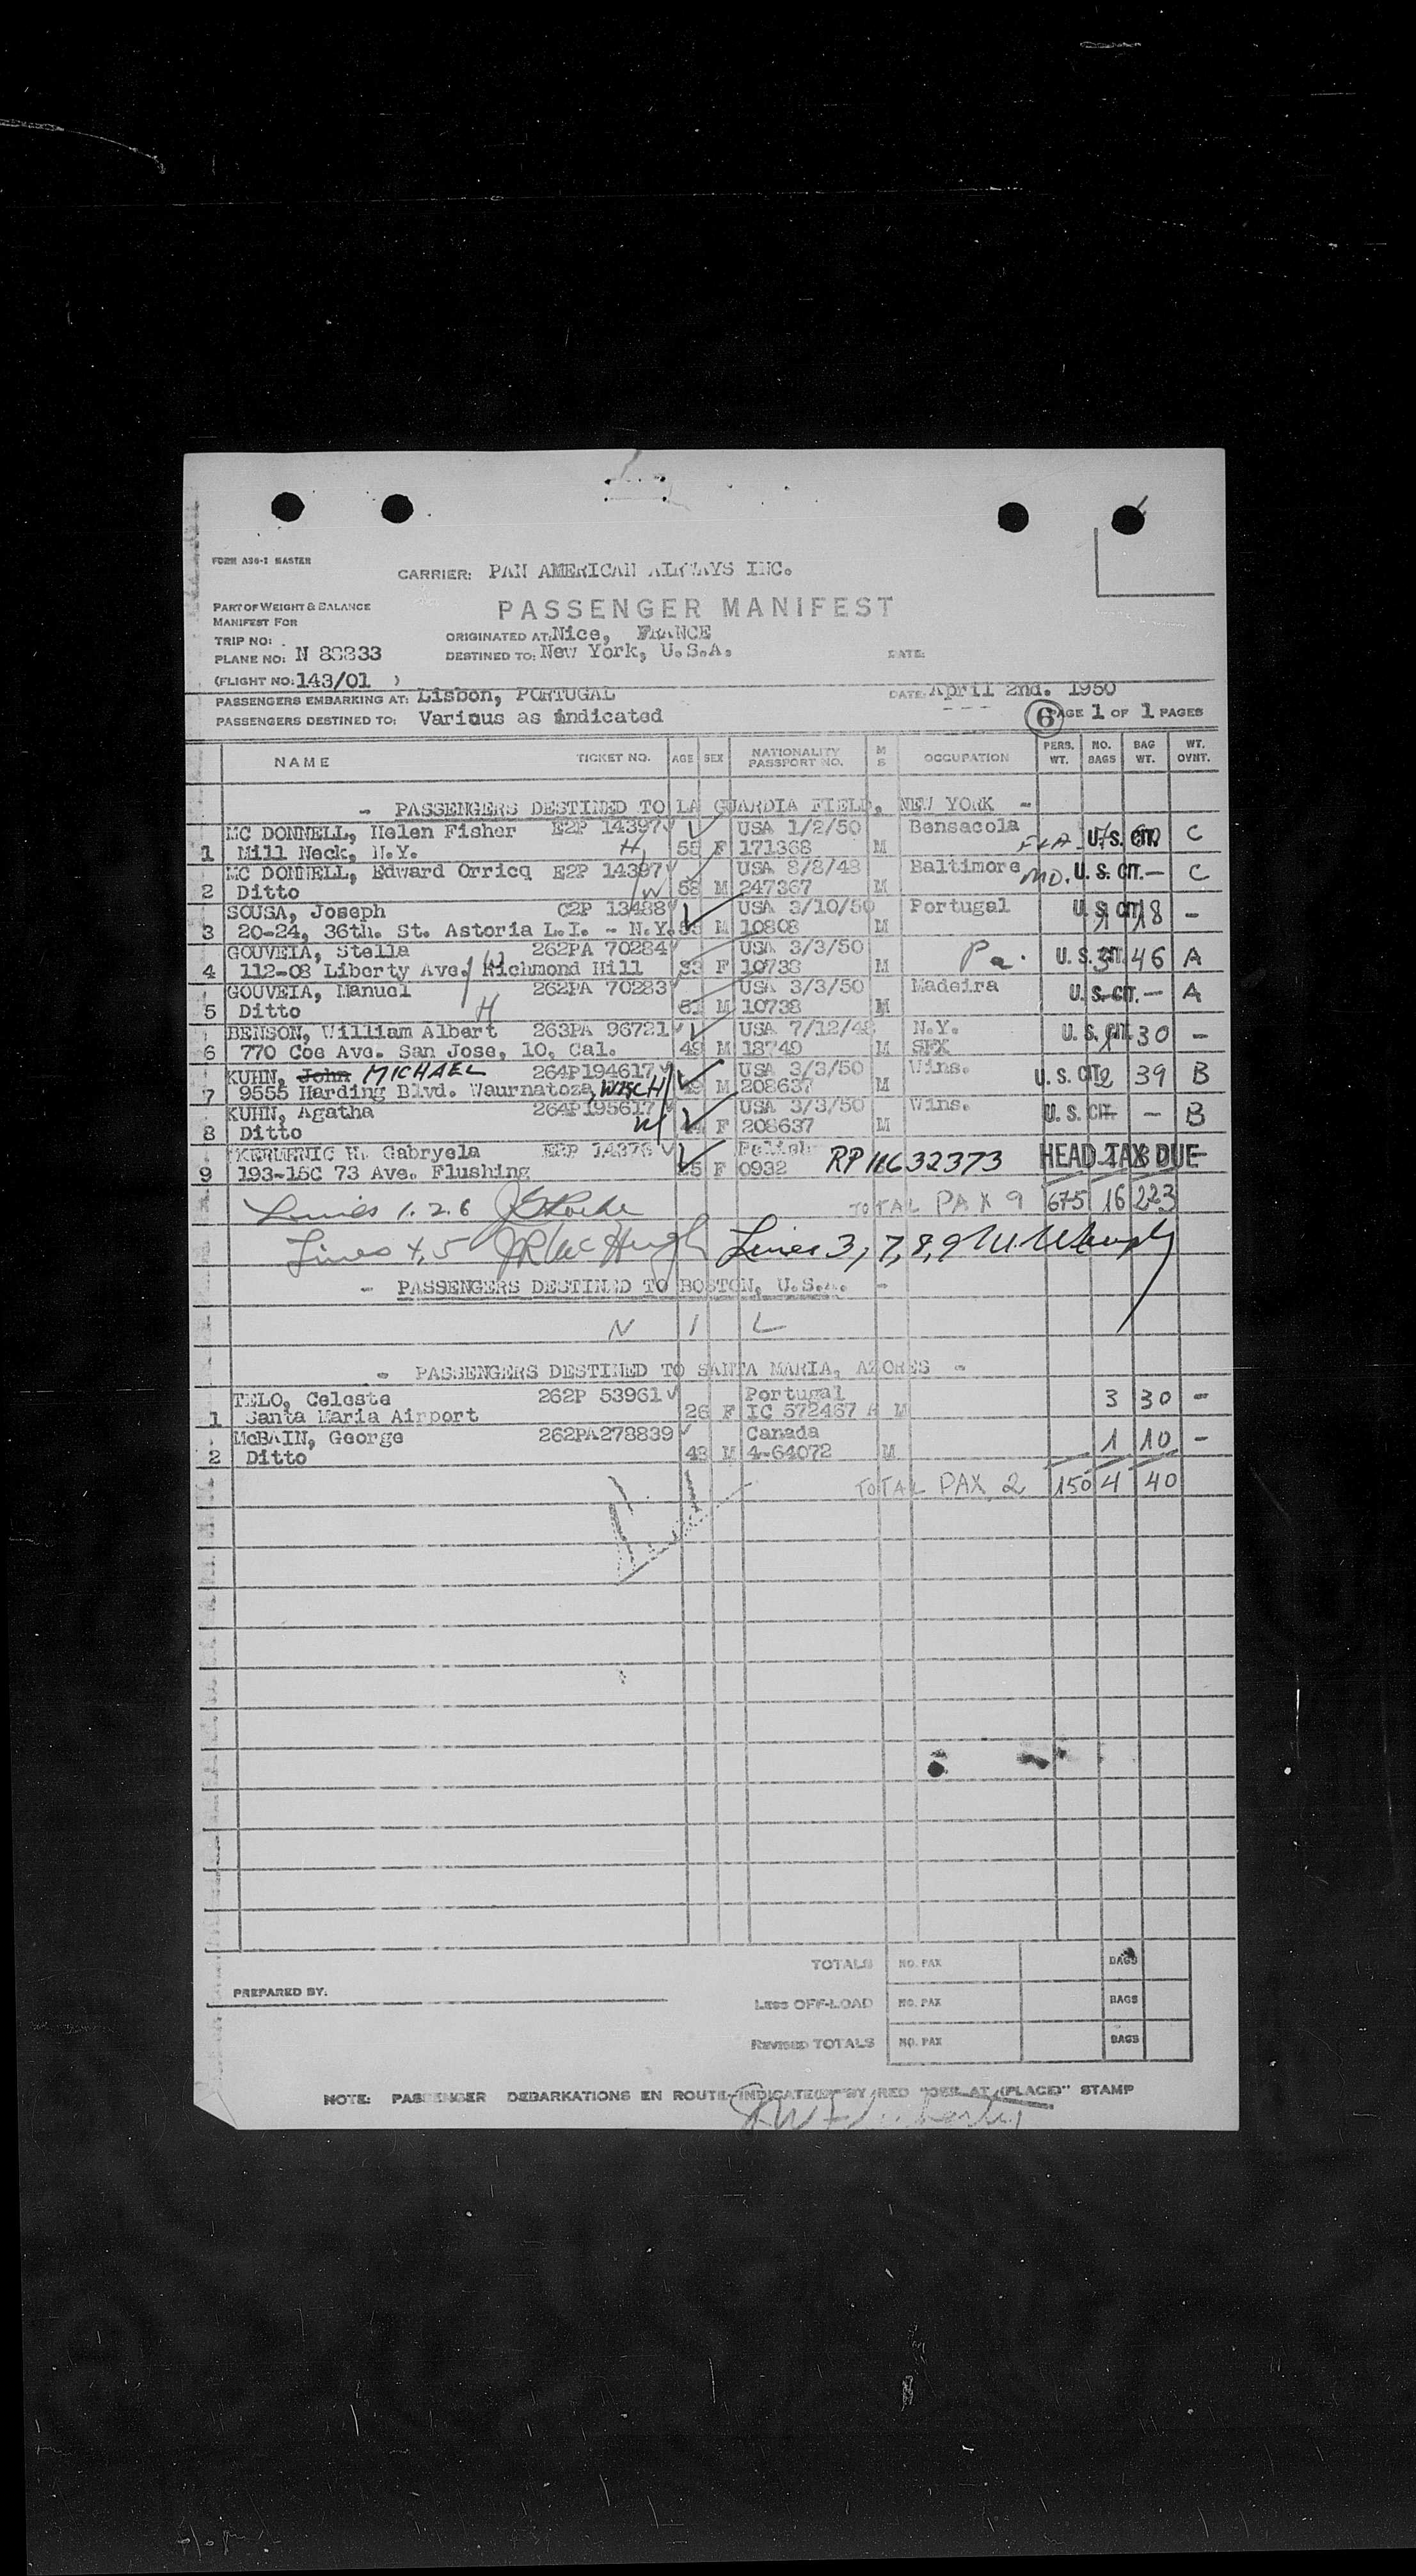 FORM A36-1 MASTER
CARRIER: PAN AMERICAN AIRWAYS INC.
PART OF WEIGHT & BALANCE
MANIFEST FOR
PASSENGER MANIFEST
TRIP NO:
ORIGINATED AT: Nice, FRANCE
PLANE NO: N 88833
DESTINED TO: New York, U.S.A.
DATE:
(FLIGHT NO: 143/01 )
PASSENGERS EMBARKING AT: Lisbon, PORTUGAL
DATE: April 2nd. 1950
PASSENGERS DESTINED TO: Various as indicated
6 PAGE 1 OF 1 PAGES
NAME TICKET NO. AGE SEX NATIONALITY PASSPORT NO. M S OCCUPATION PERS. WT. NO. BAGS BAG WT. WT. OVHT.
- PASSENGERS DESTINED TO LA GUARDIA FIELD, NEW YORK -
MC DONNELL, Helen Fisher E2P 14397 USA 1/2/50 Bensacola
1 Mill Neck, N.Y. H 55 F 171368 M FLA. U. S. CIT. C
MC DONNELL, Edward Orricq E2P 14397 USA 8/8/48 Baltimore
2 Ditto W 58 M 247367 M MD. U. S. CIT. — C
SOUSA, Joseph C2P 13488 USA 3/10/50 Portugal
3 20-24, 36th. St. Astoria L.I. - N.Y. M 10808 M U. S. CIT. 18 -
GOUVEIA, Stella 262PA 70284 USA 3/3/50
4 112-08 Liberty Ave. Richmond Hill W F 10738 M Pa. U. S. CIT. 3 46 A
GOUVEIA, Manuel 262PA 70283 USA 3/3/50 Madeira
5 Ditto H M 10738 M U. S. CIT. — A
BENSON, William Albert 263PA 96721 USA 7/12/48 N.Y.
6 770 Coe Ave. San Jose, 10, Cal. 49 M 18749 M SFX U. S. CIT. 30 -
KUHN, John MICHAEL 264P194617 USA 3/3/50 Wins.
7 9555 Harding Blvd. Waurnatoza, WISC H M 208637 M U. S. CIT. 2 39 B
KUHN, Agatha 264P195617 USA 3/3/50 Wins.
8 Ditto W F 208637 M U. S. CIT. — B
H. Gabryela E2P 14378 Polish
9 193-15C 73 Ave. Flushing F 0932 RP 1632373 HEAD TAX DUE
Lines 1. 2. 6 TOTAL PAX 9 675 16 223
Lines 4, 5 JR McHugh Lines 3, 7, 8, 9
- PASSENGERS DESTINED TO BOSTON, U.S.A. -
N I L
- PASSENGERS DESTINED TO SANTA MARIA, AZORES -
TELO, Celeste 262P 53961 Portugal
1 Santa Maria Airport 26 F IC 572467 A M 3 30 -
McBAIN, George 262PA278839 Canada
2 Ditto 43 M 4-64072 M 1 10 -
TOTAL PAX 2 150 4 40
TOTALS NO. PAX BAGS
PREPARED BY:
Less OFF-LOAD NO. PAX BAGS
Revised TOTALS NO. PAX BAGS
NOTE: PASSENGER DEBARKATIONS EN ROUTE INDICATED BY RED "DEB. AT (PLACE)" STAMP